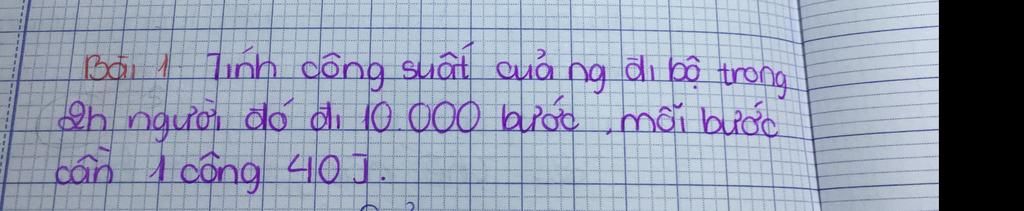 Bài 1 Tính công suất cuả ng đi bộ trong
2h người đó đi 10.000 bước, mỗi bước
cần 1 công 40J.